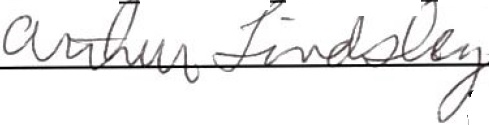 Arthur Lindsley